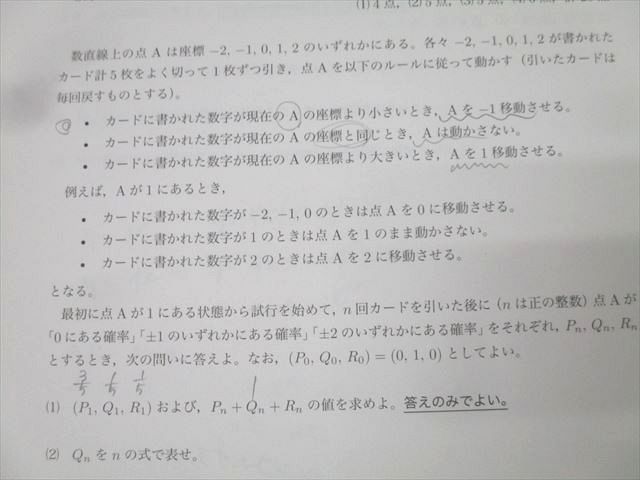 (1) 4点, (2) 5点, (3) 5点, (4) 6点,
数直線上の点 A は座標 −2, −1, 0, 1, 2 のいずれかにある。各々 −2, −1, 0, 1, 2 が書かれた
カード計5枚をよく切って1枚ずつ引き，点 A を以下のルールに従って動かす（引いたカードは
毎回戻すものとする）。
• カードに書かれた数字が現在の A の座標より小さいとき，A を −1 移動させる。
• カードに書かれた数字が現在の A の座標と同じとき，A は動かさない。
• カードに書かれた数字が現在の A の座標より大きいとき，A を 1 移動させる。
例えば，A が 1 にあるとき，
• カードに書かれた数字が −2, −1, 0 のときは点 A を 0 に移動させる。
• カードに書かれた数字が 1 のときは点 A を 1 のまま動かさない。
• カードに書かれた数字が 2 のときは点 A を 2 に移動させる。
となる。
最初に点 A が 1 にある状態から試行を始めて，n 回カードを引いた後に（n は正の整数）点 A が
「0 にある確率」「±1 のいずれかにある確率」「±2 のいずれかにある確率」をそれぞれ，Pn, Qn, Rn
とするとき，次の問いに答えよ。なお，(P0, Q0, R0) = (0, 1, 0) としてよい。
3/5 1/5 1/5 1
(1) (P1, Q1, R1) および，Pn + Qn + Rn の値を求めよ。答えのみでよい。
(2) Qn を n の式で表せ。